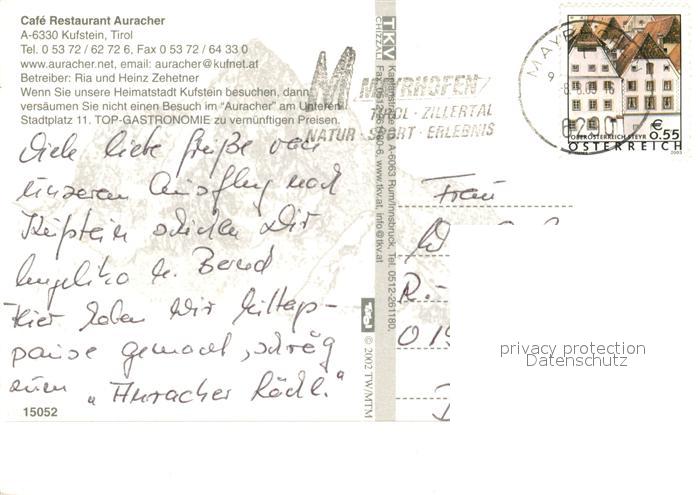 Café Restaurant Auracher
A-6330 Kufstein, Tirol
Tel. 0 53 72 / 62 72 6, Fax 0 53 72 / 64 33 0
www.auracher.net, email: auracher@kufnet.at
Betreiber: Ria und Heinz Zehetner
Wenn Sie unsere Heimatstadt Kufstein besuchen, dann
versäumen Sie nicht einen Besuch im "Auracher" am Unteren
Stadtplatz 11. TOP-GASTRONOMIE zu vernünftigen Preisen.
Viele liebe Grüße von
unserem Ausflug nach
Kufstein schicken Dir
Angelika u. Bernd
Hier haben wir Mittags-
pause gemacht, schräg
zum "Auracher Löchl."
15052
TKV
CHIZZALI
A-6063 Rum/Innsbruck, Tel. 0512-261180,
www.tkv.at, info@tkv.at
Tirol
© 2002 TW/MTM
MAYRHOFEN
TIROL · ZILLERTAL
NATUR · SPORT · ERLEBNIS
OBERÖSTERREICH STEYR
€ 0.55
ÖSTERREICH
2003
Frau
R.-
privacy protection
Datenschutz